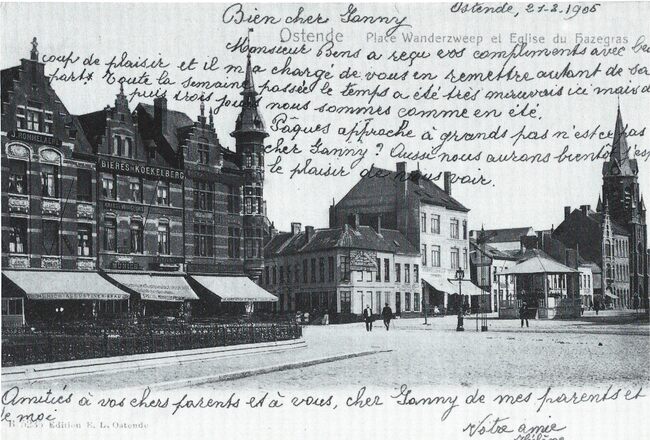 Ostende, 21-3.1906
Bien cher Ganny
Ostende Place Wanderzweep et Eglise du Hazegras
Monsieur Bens a reçu vos compliments avec beu
coup de plaisir et il m'a chargé de vous en remettre autant de sa
part. Toute la semaine passée le temps a été très mauvais ici mais de
puis trois jours nous sommes comme en été.
Pâques approche à grands pas n'est ce pas
cher Ganny? Aussi nous aurons bientôt
le plaisir de nous voir.
J. ROMMELAERE
BIERES KOEKELBERG
Amitiés à vos chers parents et à vous, cher Ganny de mes parents et
de moi
Edition E. L. Ostende
Votre amie
Hélène